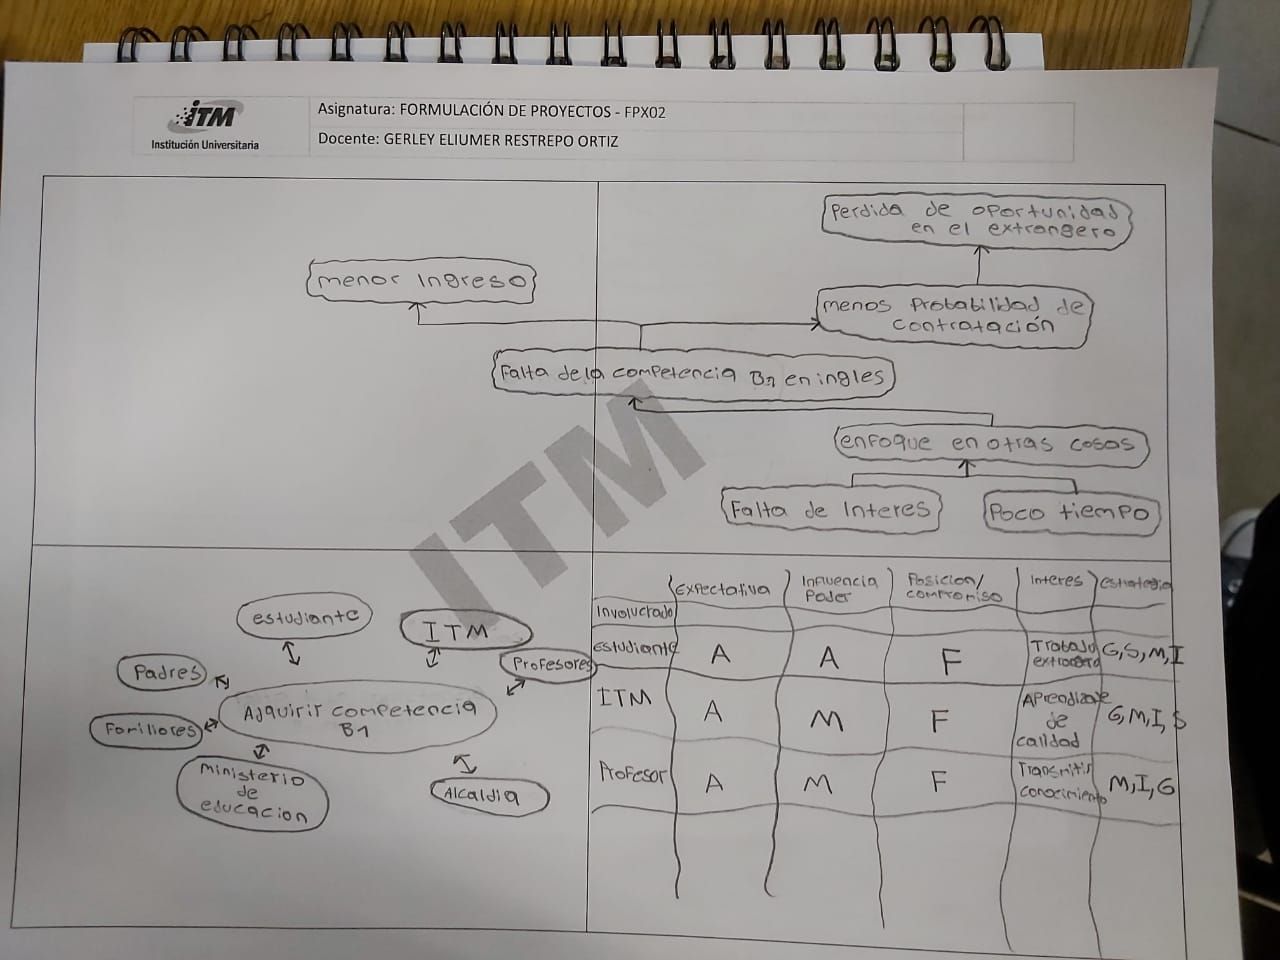 ITM
Institución Universitaria
Asignatura: FORMULACIÓN DE PROYECTOS - FPX02
Docente: GERLEY ELIUMER RESTREPO ORTIZ
Perdida de oportunidad
en el extrangero
menor Ingreso
menos Probabilidad de
contratación
Falta de la competencia B1 en ingles
enfoque en otras cosas
Falta de Interes
Poco tiempo
ITM
estudiante
ITM
Profesores
Padres
Familiares
Adquirir competencia
B1
ministerio
de
educacion
Alcaldia
Involucrado
Expectativa
Influencia
Poder
Posicion/
compromiso
Interes
estrategia
estudiante
A
A
F
Trabajo
extranjero
G, S, M, I
ITM
A
M
F
Aprendizaje
de
calidad
G, M, I, S
Profesor
A
M
F
Transmitir
conocimiento
M, I, G